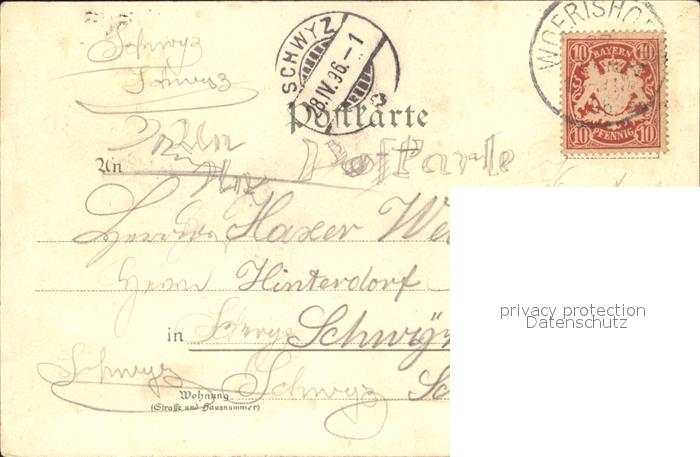 Schwyz
Schwyz
SCHWYZ
28.IV.96.-1
WOERISHO
10 BAYERN 10
10 PFENNIG 10
Postkarte
An
Postkarte
Herrn Haxer We
Herrn Hinterdorf
in Schwyz
Schwyz Schwyz Sc
Wohnung
(Straße und Hausnummer)
privacy protection
Datenschutz